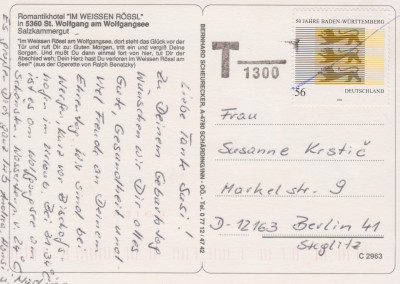 Romantikhotel "IM WEISSEN RÖSSL"
in 5360 St. Wolfgang am Wolfgangsee
Salzkammergut
"Im Weissen Rössl am Wolfgangsee, dort steht das Glück vor der
Tür und ruft Dir zu: Guten Morgen, tritt ein und vergiß Deine
Sorgen. Und mußt Du dann einmal fort von hier, tut Dir der
Abschied weh; Dein Herz hast Du verloren im Weissen Rössl am
See" (aus der Operette von Ralph Benatzky)
Liebe Tante Susi!
Zu Deinem Geburtstag
wünschen wir Dir alles
Gute, Gesundheit und
viel Freud an Deinem
Ehrentag. Wir sind bei
Hofen im Urlaub. Bei 31 Grad
ist es am Wolfgangsee am
BERNHARD SCHEURECKER, A-4780 SCHÄRDING/INN - OÖ. - Tel. 0 77 12 / 47 42
T
1300
50 JAHRE BADEN-WÜRTTEMBERG
56
DEUTSCHLAND
Frau
Susanne Krstič
Markelstr. 9
D-12163 Berlin 41
Steglitz
C 2963